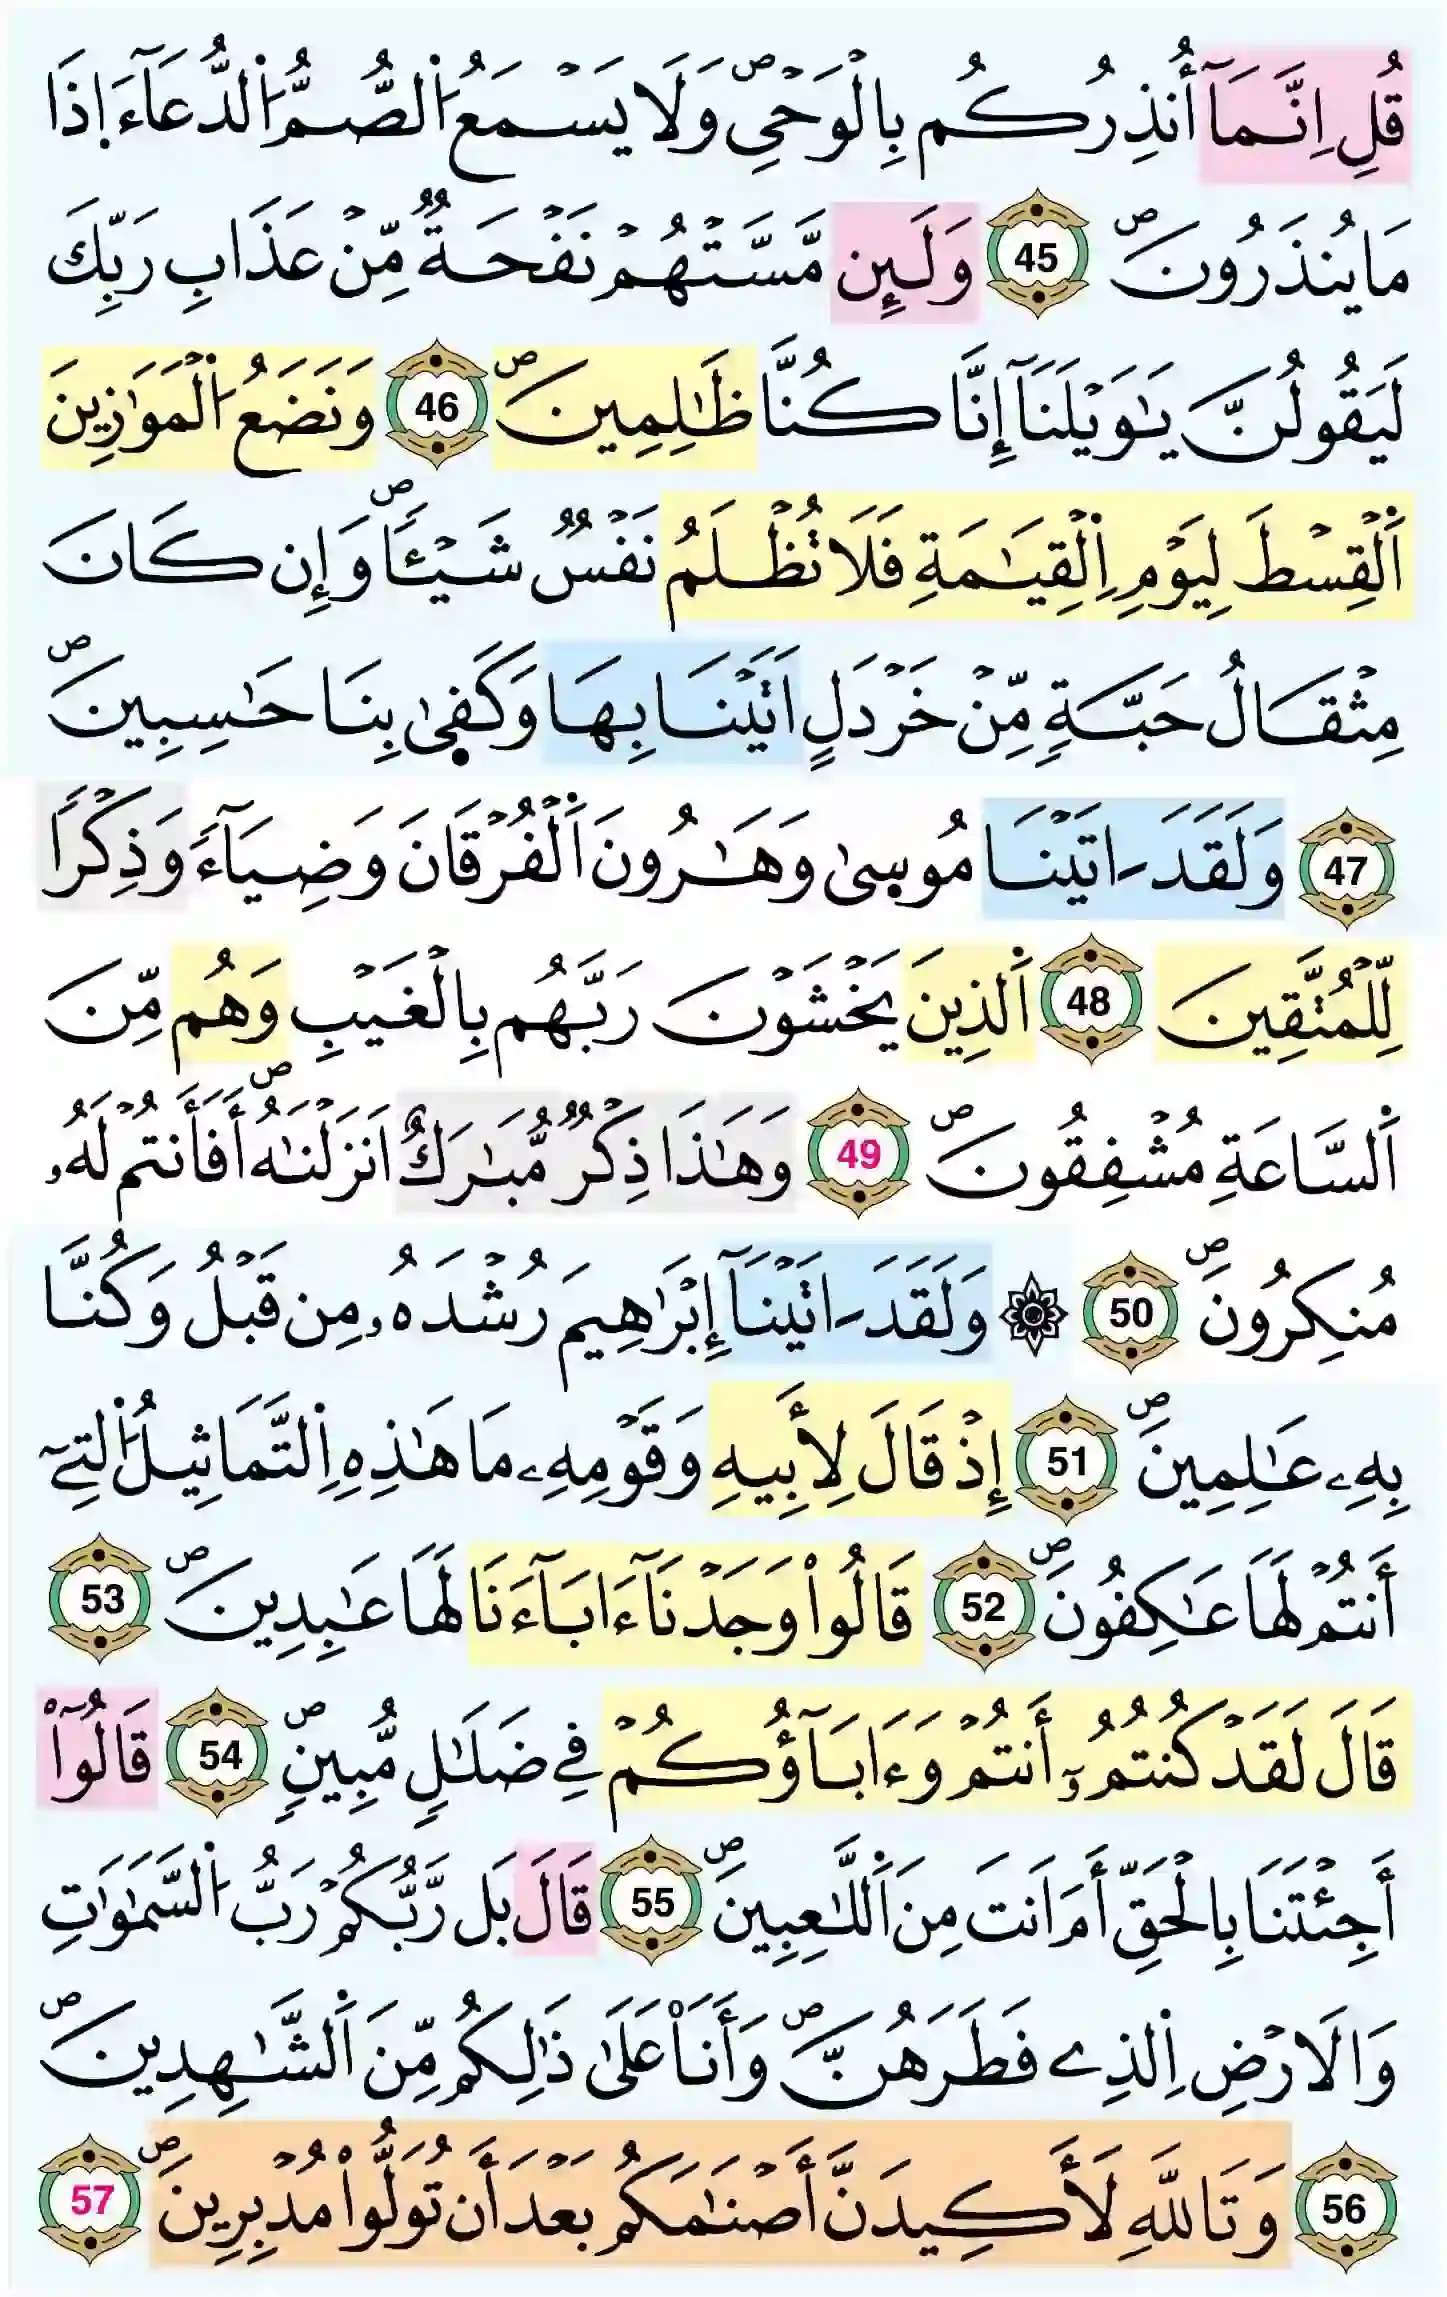 قُلِ اِنَّمَآ أُنذِرُكُم بِالْوَحْيِۖ وَلَا يَسْمَعُ اُ۬لصُّمُّ اُ۬لدُّعَآءَ اِ۪ذَا
مَا يُنذَرُونَۖ 45 وَلَئِن مَّسَّتْهُمْ نَفْحَةٞ مِّنْ عَذَابِ رَبِّكَ
لَيَقُولُنَّ يَٰوَيْلَنَآ إِنَّا كُنَّا ظَٰلِمِينَۖ 46 وَنَضَعُ اُ۬لْمَوَٰزِينَ
اَ۬لْقِسْطَ لِيَوْمِ اِ۬لْقِيَٰمَةِ فَلَا تُظْلَمُ نَفْسٞ شَيْـٔاٗۖ وَإِن كَانَ
مِثْقَالُ حَبَّةٖ مِّنْ خَرْدَلٍ اَتَيْنَا بِهَا وَكَف۪ىٰ بِنَا حَٰسِبِينَۖ
47 وَلَقَدَ اٰتَيْنَا مُوس۪ىٰ وَهَٰرُونَ اَ۬لْفُرْقَانَ وَضِيَآءٗ وَذِكْراٗ
لِّلْمُتَّقِينَ 48 اَ۬لذِينَ يَخْشَوْنَ رَبَّهُم بِالْغَيْبِ وَهُم مِّنَ
اَ۬لسَّاعَةِ مُشْفِقُونَۖ 49 وَهَٰذَا ذِكْرٞ مُّبَٰرَكٌ اَنزَلْنَٰهُۖ أَفَأَنتُمْ لَهُۥ
مُنكِرُونَۖ 50 ۞ وَلَقَدَ اٰتَيْنَآ إِبْرَٰهِيمَ رُشْدَهُۥ مِن قَبْلُ وَكُنَّا
بِهِۦ عَٰلِمِينَۖ 51 إِذْ قَالَ لِأَبِيهِ وَقَوْمِهِۦ مَا هَٰذِهِ اِ۬لتَّمَاثِيلُ اُ۬لتِےٓ
أَنتُمْ لَهَا عَٰكِفُونَۖ 52 قَالُواْ وَجَدْنَآ ءَابَآءَنَا لَهَا عَٰبِدِينَۖ 53
قَالَ لَقَدْ كُنتُمُۥٓ أَنتُمْ وَءَابَآؤُكُمْ فِے ضَلَٰلٖ مُّبِينٖۖ 54 قَالُوٓاْ
أَجِئْتَنَا بِالْحَقِّ أَمَ اَنتَ مِنَ اَ۬للَّٰعِبِينَۖ 55 قَالَ بَل رَّبُّكُمْ رَبُّ اُ۬لسَّمَٰوَٰتِ
وَالَارْضِ اِ۬لذِے فَطَرَهُنَّۖ وَأَنَا۠ عَلَىٰ ذَٰلِكُم مِّنَ اَ۬لشَّٰهِدِينَۖ
56 وَتَاللَّهِ لَأَكِيدَنَّ أَصْنَٰمَكُم بَعْدَ أَن تُوَلُّواْ مُدْبِرِينَۖ 57